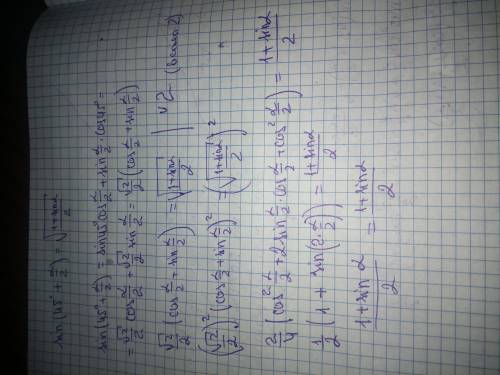 sin(45° + α/2) = √((1+sinα)/2)
sin(45° + α/2) = sin45°cos α/2 + sin α/2 · cos45° =
= √2/2 cos α/2 + √2/2 sin α/2 = √2/2 (cos α/2 + sin α/2)
√2/2 (cos α/2 + sin α/2) = √((1+sinα)/2) | ^2
(√2/2)² (cos α/2 + sin α/2)² = (√((1+sinα)/2))²
2/4 (cos² α/2 + 2sin α/2 · cos α/2 + cos² α/2) = (1+sinα)/2
1/2 (1 + sin(2·α/2)) = (1+sinα)/2
(1+sinα)/2 = (1+sinα)/2